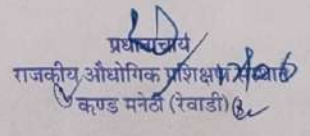 प्रधानाचार्य
राजकीय औधोगिक प्रशिक्षण
कुण्ड मनेठी (रेवाडी)